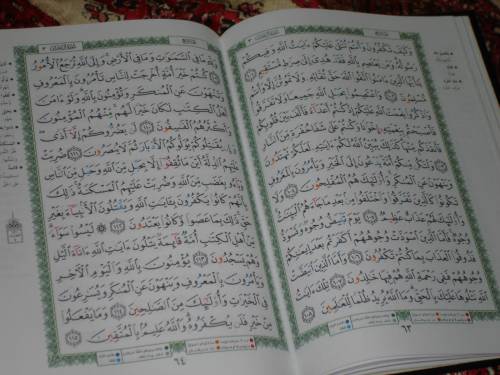 وَكَيْفَ تَكْفُرُونَ وَأَنتُمْ تُتْلَىٰ عَلَيْكُمْ ءَايَٰتُ ٱللَّهِ وَفِيكُمْ
رَسُولُهُۥ وَمَن يَعْتَصِم بِٱللَّهِ فَقَدْ هُدِيَ إِلَىٰ صِرَٰطٍ مُّسْتَقِيمٍ ١٠١
يَٰٓأَيُّهَا ٱلَّذِينَ ءَامَنُوا۟ ٱتَّقُوا۟ ٱللَّهَ حَقَّ تُقَاتِهِۦ وَلَا تَمُوتُنَّ إِلَّا وَأَنتُم
مُّسْلِمُونَ ١٠٢ وَٱعْتَصِمُوا۟ بِحَبْلِ ٱللَّهِ جَمِيعًا وَلَا تَفَرَّقُوا۟
وَٱذْكُرُوا۟ نِعْمَتَ ٱللَّهِ عَلَيْكُمْ إِذْ كُنتُمْ أَعْدَآءً فَأَلَّفَ بَيْنَ قُلُوبِكُمْ
فَأَصْبَحْتُم بِنِعْمَتِهِۦٓ إِخْوَٰنًا وَكُنتُمْ عَلَىٰ شَفَا حُفْرَةٍ مِّنَ ٱلنَّارِ
فَأَنقَذَكُم مِّنْهَا كَذَٰلِكَ يُبَيِّنُ ٱللَّهُ لَكُمْ ءَايَٰتِهِۦ لَعَلَّكُمْ تَهْتَدُونَ
١٠٣ وَلْتَكُن مِّنكُمْ أُمَّةٌ يَدْعُونَ إِلَى ٱلْخَيْرِ وَيَأْمُرُونَ بِٱلْمَعْرُوفِ
وَيَنْهَوْنَ عَنِ ٱلْمُنكَرِ وَأُو۟لَٰٓئِكَ هُمُ ٱلْمُفْلِحُونَ ١٠٤
وَلَا تَكُونُوا۟ كَٱلَّذِينَ تَفَرَّقُوا۟ وَٱخْتَلَفُوا۟ مِنۢ بَعْدِ مَا جَآءَهُمُ ٱلْبَيِّنَٰتُ
وَأُو۟لَٰٓئِكَ لَهُمْ عَذَابٌ عَظِيمٌ ١٠٥ يَوْمَ تَبْيَضُّ وُجُوهٌ وَتَسْوَدُّ
وُجُوهٌ فَأَمَّا ٱلَّذِينَ ٱسْوَدَّتْ وُجُوهُهُمْ أَكَفَرْتُم بَعْدَ إِيمَٰنِكُمْ
فَذُوقُوا۟ ٱلْعَذَابَ بِمَا كُنتُمْ تَكْفُرُونَ ١٠٦ وَأَمَّا ٱلَّذِينَ ٱبْيَضَّتْ
وُجُوهُهُمْ فَفِى رَحْمَةِ ٱللَّهِ هُمْ فِيهَا خَٰلِدُونَ ١٠٧ تِلْكَ ءَايَٰتُ
ٱللَّهِ نَتْلُوهَا عَلَيْكَ بِٱلْحَقِّ وَمَا ٱللَّهُ يُرِيدُ ظُلْمًا لِّلْعَٰلَمِينَ ١٠٨
٦٣
وَلِلَّهِ مَا فِى ٱلسَّمَٰوَٰتِ وَمَا فِى ٱلْأَرْضِ وَإِلَى ٱللَّهِ تُرْجَعُ ٱلْأُمُورُ
١٠٩ كُنتُمْ خَيْرَ أُمَّةٍ أُخْرِجَتْ لِلنَّاسِ تَأْمُرُونَ بِٱلْمَعْرُوفِ
وَتَنْهَوْنَ عَنِ ٱلْمُنكَرِ وَتُؤْمِنُونَ بِٱللَّهِ وَلَوْ ءَامَنَ
أَهْلُ ٱلْكِتَٰبِ لَكَانَ خَيْرًا لَّهُم مِّنْهُمُ ٱلْمُؤْمِنُونَ
وَأَكْثَرُهُمُ ٱلْفَٰسِقُونَ ١١٠ لَن يَضُرُّوكُمْ إِلَّآ أَذًى
وَإِن يُقَٰتِلُوكُمْ يُوَلُّوكُمُ ٱلْأَدْبَارَ ثُمَّ لَا يُنصَرُونَ ١١١ ضُرِبَتْ
عَلَيْهِمُ ٱلذِّلَّةُ أَيْنَ مَا ثُقِفُوٓا۟ إِلَّا بِحَبْلٍ مِّنَ ٱللَّهِ وَحَبْلٍ مِّنَ ٱلنَّاسِ
وَبَآءُو بِغَضَبٍ مِّنَ ٱللَّهِ وَضُرِبَتْ عَلَيْهِمُ ٱلْمَسْكَنَةُ ذَٰلِكَ
بِأَنَّهُمْ كَانُوا۟ يَكْفُرُونَ بِـَٔايَٰتِ ٱللَّهِ وَيَقْتُلُونَ ٱلْأَنۢبِيَآءَ بِغَيْرِ
حَقٍّ ذَٰلِكَ بِمَا عَصَوا۟ وَّكَانُوا۟ يَعْتَدُونَ ١١٢ لَيْسُوا۟ سَوَآءً
مِّنْ أَهْلِ ٱلْكِتَٰبِ أُمَّةٌ قَآئِمَةٌ يَتْلُونَ ءَايَٰتِ ٱللَّهِ ءَانَآءَ ٱلَّيْلِ
وَهُمْ يَسْجُدُونَ ١١٣ يُؤْمِنُونَ بِٱللَّهِ وَٱلْيَوْمِ ٱلْءَاخِرِ
وَيَأْمُرُونَ بِٱلْمَعْرُوفِ وَيَنْهَوْنَ عَنِ ٱلْمُنكَرِ وَيُسَٰرِعُونَ
فِى ٱلْخَيْرَٰتِ وَأُو۟لَٰٓئِكَ مِنَ ٱلصَّٰلِحِينَ ١١٤ وَمَا يَفْعَلُوا۟
مِنْ خَيْرٍ فَلَن يُكْفَرُوهُ وَٱللَّهُ عَلِيمٌۢ بِٱلْمُتَّقِينَ ١١٥
٦٤